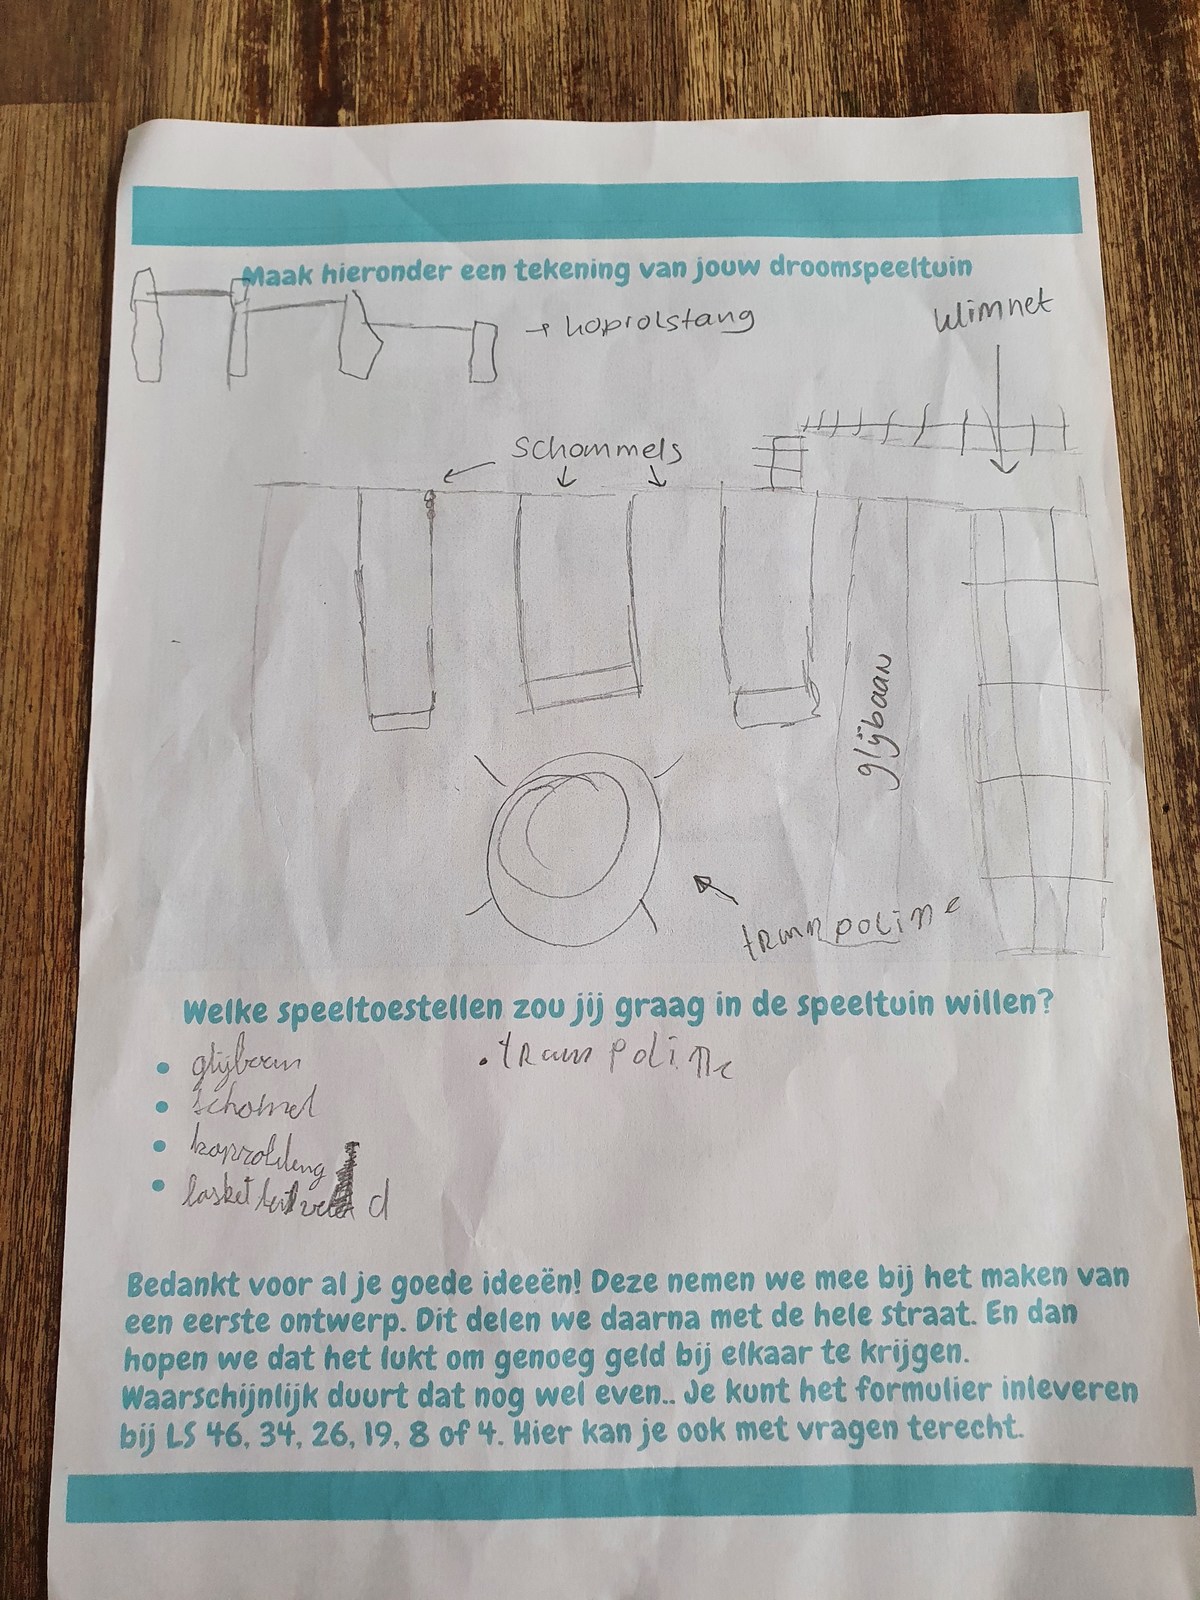 Maak hieronder een tekening van jouw droomspeeltuin
→ koprolstang
klimnet
schommels
glijbaan
trampoline
Welke speeltoestellen zou jij graag in de speeltuin willen?
• glijbaan
• trampoline
• schommel
•
• basketbalveld
Bedankt voor al je goede ideeën! Deze nemen we mee bij het maken van
een eerste ontwerp. Dit delen we daarna met de hele straat. En dan
hopen we dat het lukt om genoeg geld bij elkaar te krijgen.
Waarschijnlijk duurt dat nog wel even.. Je kunt het formulier inleveren
bij LS 46, 34, 26, 19, 8 of 4. Hier kan je ook met vragen terecht.